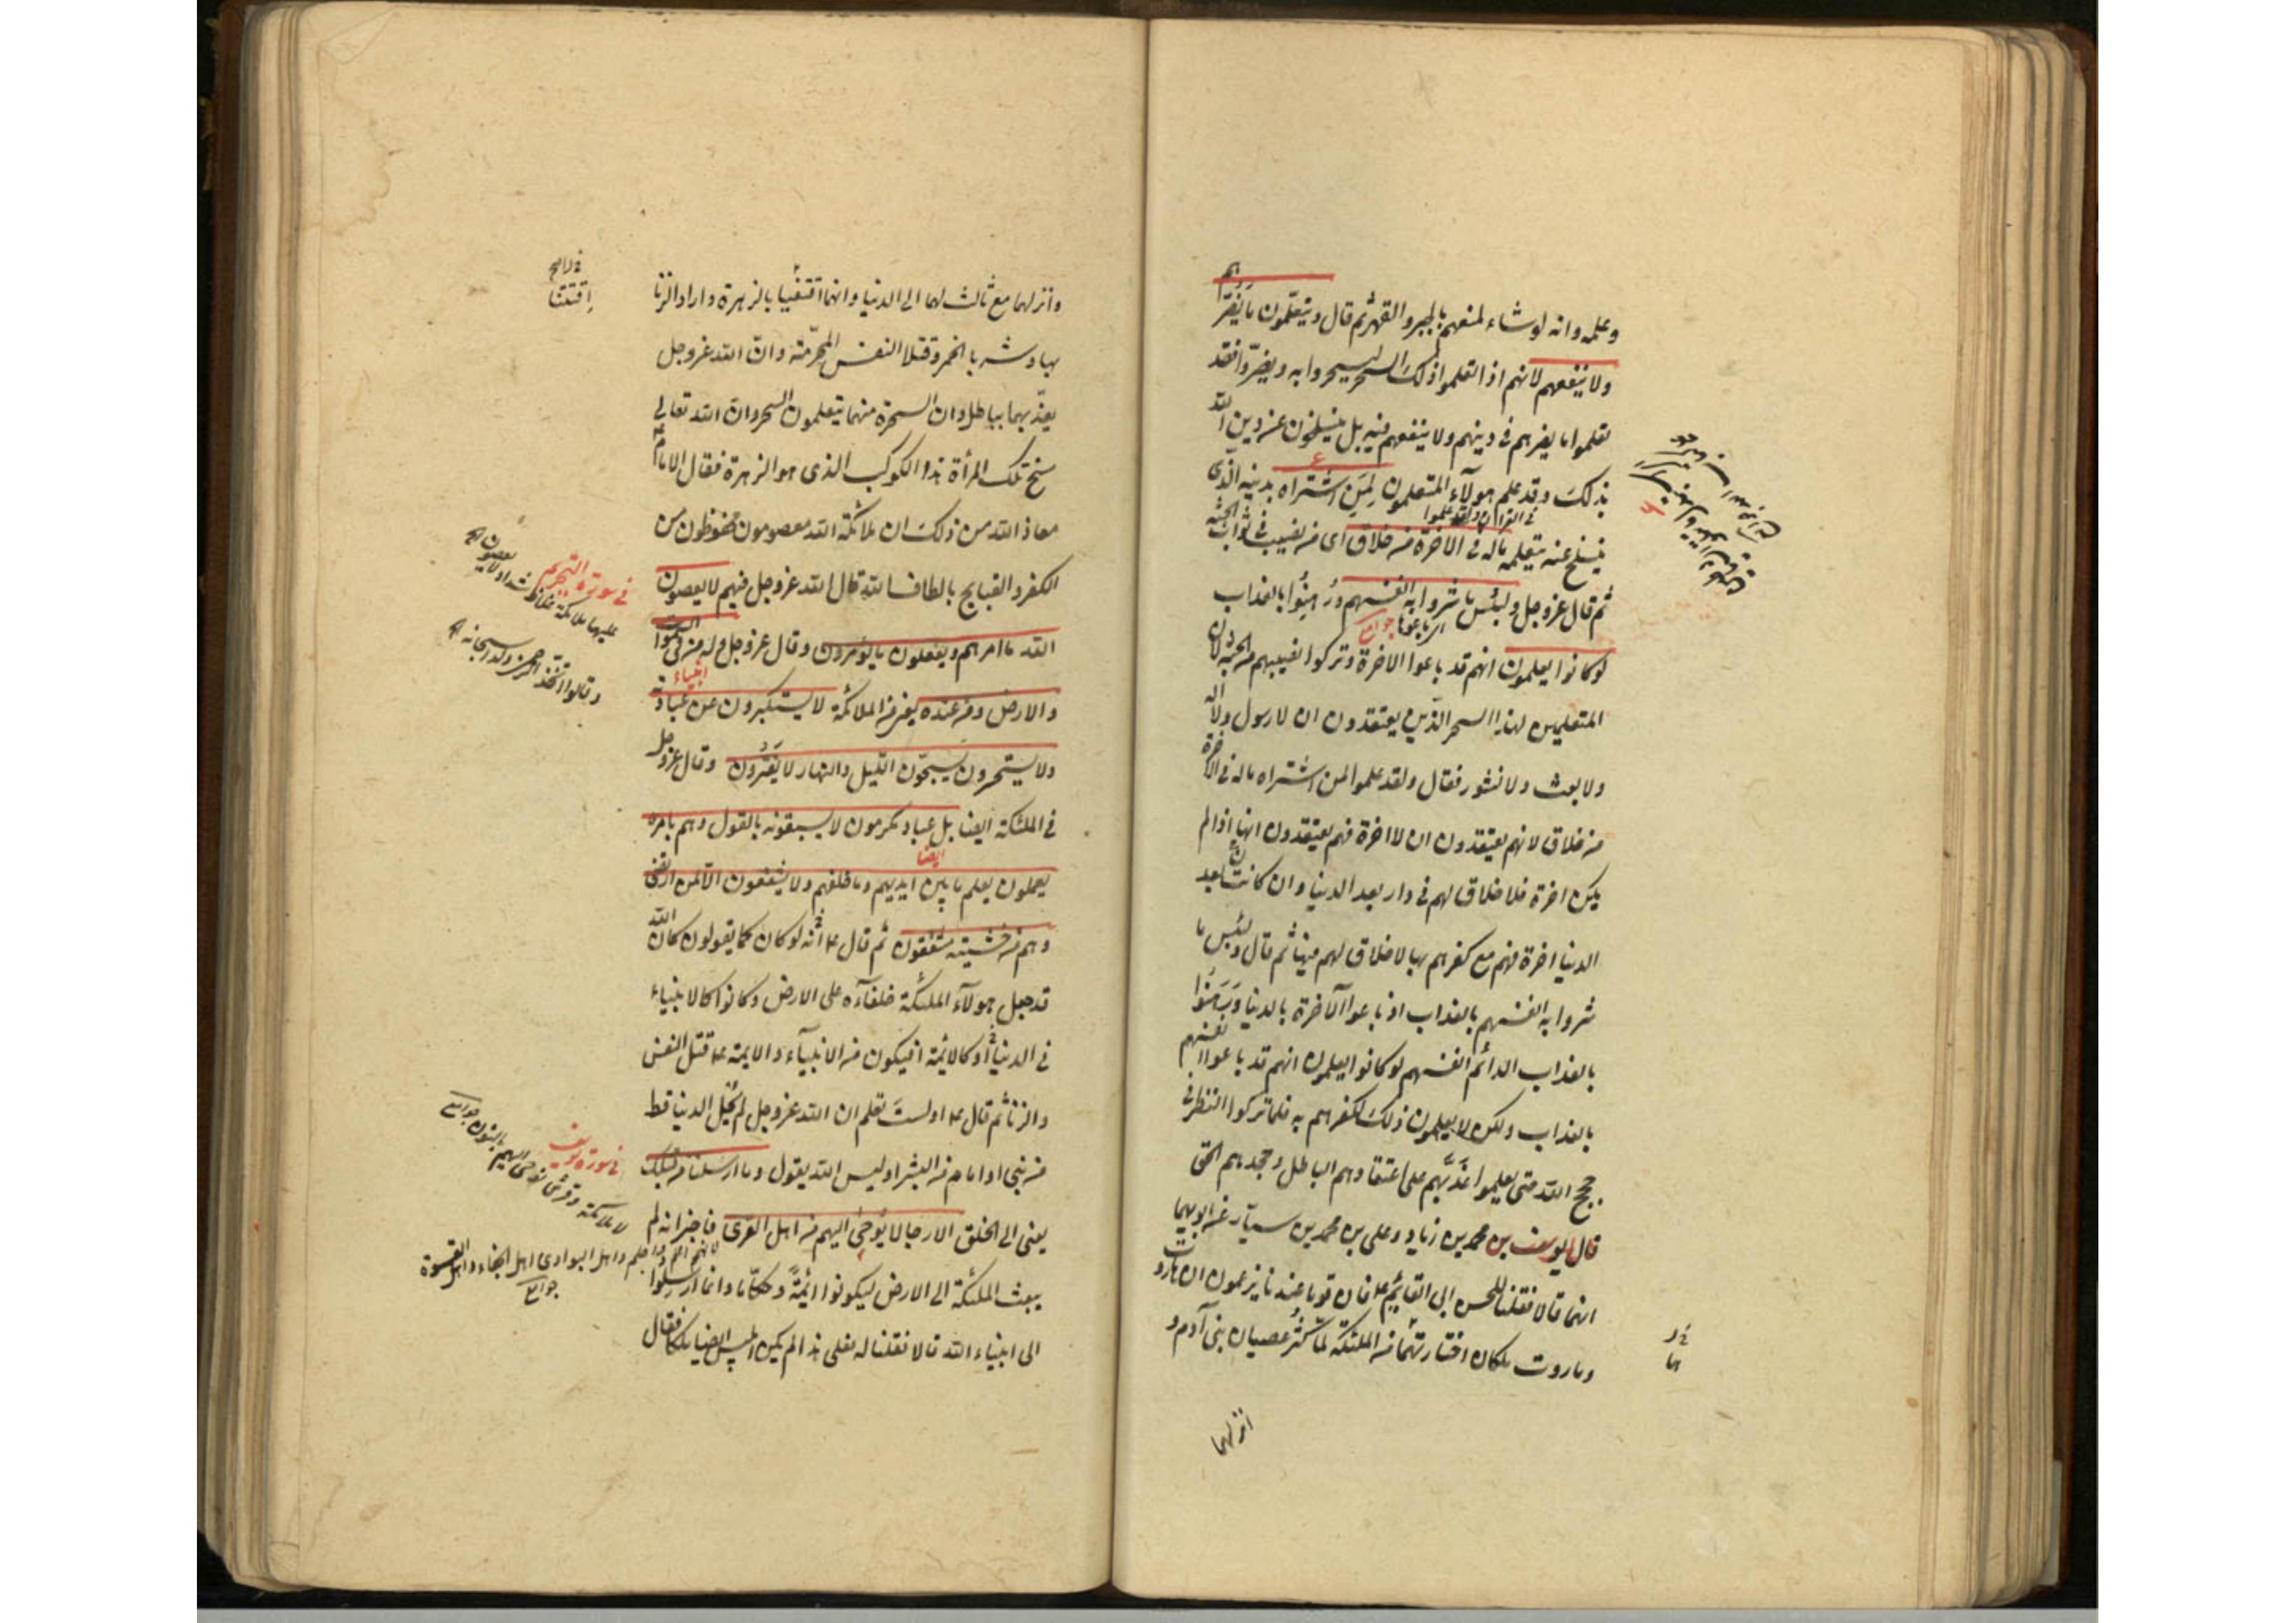 وعلمه وانه لوشاء لمنعهم بالجبر والقهر ثم قال ويتعلمون ما يضرهم
ولا ينفعهم لانهم اذا تعلموا ذلك السحر ليسحروا به ويضروا فقد
تعلموا ما يضرهم فى دينهم ولا ينفعهم فيه بل ينسلخون عن دين الله
بذلك وقد علم هولآء المتعلمون لمن اشتراه بدينه الذى
ينسلخ عنه بتعلمه ماله فى الآخرة من خلاق اى من نصيب فى ثواب الجنة
فى القران ولقد علموا
ثم قال عز وجل ولبئس ما شروا به انفسهم ورهنوا بالعذاب
اى باعوا جوامع
لو كانوا يعلمون انهم قد باعوا الاخرة وتركوا نصيبهم من الجنة لان
المتعلمين لهذا السحر الذين يعتقدون ان لا رسول ولا اله
ولا بعث ولا نشور فقال ولقد علموا لمن اشتراه ماله فى الآخرة
من خلاق لانهم يعتقدون ان لا اخرة فهم يعتقدون انها اذا لم
يكن اخرة فلا خلاق لهم فى دار بعد الدنيا وان كانت بعد
الدنيا اخرة فهم مع كفرهم بها لا خلاق لهم فيها ثم قال ولبئس ما
شروا به انفسهم بالعذاب اذ باعوا الآخرة بالدنيا ورهنوا
بالعذاب الدائم انفسهم لو كانوا يعلمون انهم قد باعوا انفسهم
بالعذاب ولكن لا يعلمون ذلك لكفرهم به فلما تركوا النظر فى
حجج الله حتى يعلموا عذبهم على اعتقادهم الباطل وجحدهم الحق
قال يوسف بن محمد بن زياد وعلى بن محمد بن سيار عن ابويهما
انهما قالا فقلنا للحسن ابى القائم ع فان قوما عندنا يزعمون ان هاروت
وماروت ملكان اختارتهما الملئكة لما كثر عصيان بنى آدم و
انزلهما
وانزلهما مع ثالث لهما الى الدنيا وانهما افتتنا بالزهرة واراد الزنا
افتتنا
بها وشربا الخمر وقتلا النفس المحرمة وان الله عز وجل
يعذبهما ببابل وان السحرة منهما يتعلمون السحر وان الله تعالى
مسخ تلك المرأة هذا الكوكب الذى هو الزهرة فقال الامام ع
معاذ الله من ذلك ان ملائكة الله معصومون محفوظون من
الكفر والقبايح بالطاف الله قال الله عز وجل فيهم لا يعصون
فى سورة التحريم
عليها ملائكة غلاظ شداد لا يعصون
الله ما امرهم ويفعلون ما يؤمرون وقال عز وجل وله من فى السموات
وقالوا اتخذ الرحمن ولدا سبحانه
انبياء
والارض ومن عنده يعنى من الملائكة لا يستكبرون عن عبادته
ولا يستحسرون يسبحون الليل والنهار لا يفترون وقال عز وجل
فى الملئكة ايضا بل عباد مكرمون لا يسبقونه بالقول وهم بامره
ايضا
يعملون يعلم ما بين ايديهم وما خلفهم ولا يشفعون الا لمن ارتضى
وهم من خشيته مشفقون ثم قال ع انه لو كان كما يقولون كان الله
قد جعل هولآء الملئكة خلفاءه على الارض وكانوا كالانبياء
فى الدنيا او كالائمة افيكون من الانبياء والايمة ع قتل النفس
والزنا ثم قال ع اولست تعلم ان الله عز وجل لم يخل الدنيا قط
من نبى او امام من البشر اوليس الله يقول وما ارسلنا من قبلك
فى سورة يوسف
لا ملائكة وقرئ نوحى اليهم بالنون جوامع
يعنى الى الخلق الا رجالا يوحى اليهم من اهل القرى فاخبر انه لم
لانهم اعلم واحلم واهل البوادى اهل الجفاء والقسوة
جوامع
يبعث الملئكة الى الارض ليكونوا ائمة وحكاما وانما ارسلوا
الى انبياء الله قالا فقلنا له فعلى هذا لم يكن ابليس ايضا ملكا فقال